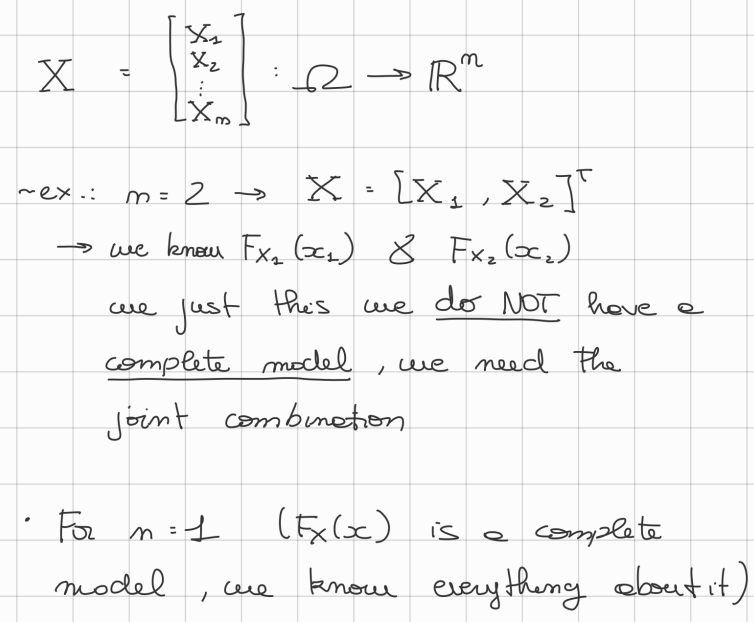 X = [X₁ X₂ ⋮ Xₙ] : Ω → ℝⁿ
~ex.: n = 2 → X = [X₁, X₂]ᵀ
→ we know F_X₁(x₁) & F_X₂(x₂)
we just this we do NOT have a
complete model, we need the
joint combination
· For n = 1 (F_X(x) is a complete
model, we know everything about it)